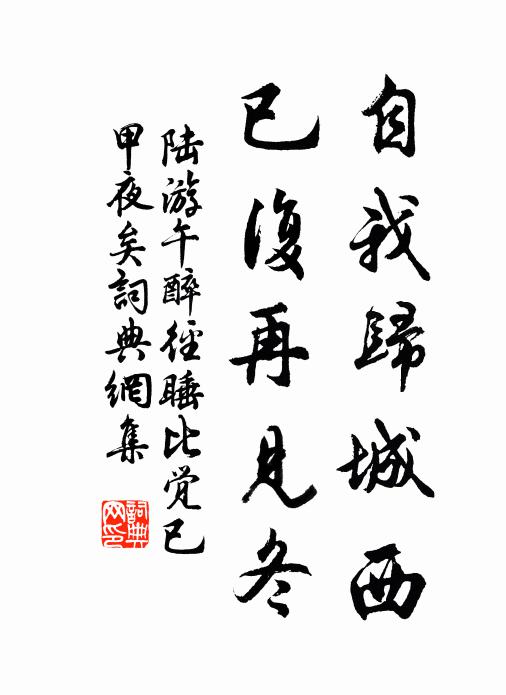 自我歸城西
已復再見冬
陸游午醉徑睡比覺已
甲夜矣詞典網集
詞典
网印